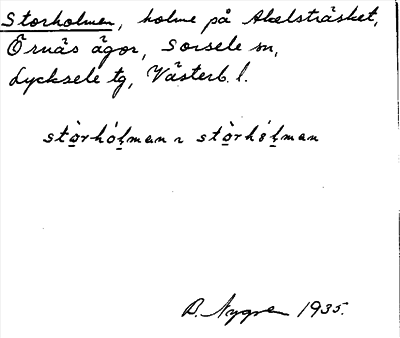 Storholmen, holme på Akelsträsket,
Örnäs ägor, Sorsele sn,
Lycksele tg, Västerb. l.
stò̱rhóḷman ~ stò̱rhòḷman
B. Nygren 1935.